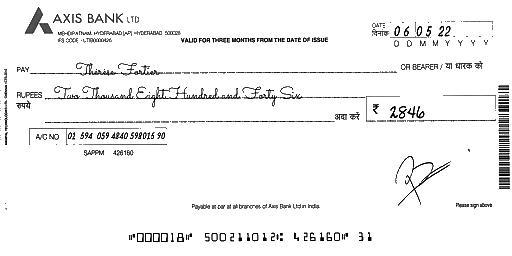 AXIS BANK LTD
MEHDIPATNAM, HYDERABAD [AP] - HYDERABAD 500028
IFS CODE - UTIB0000426
VALID FOR THREE MONTHS FROM THE DATE OF ISSUE
DATE
दिनांक 06 05 22
D D M M Y Y Y Y
PAY Thérèse Fortier OR BEARER / या धारक को
RUPEES Two Thousand Eight Hundred and Forty Six
रुपये अदा करें ₹ 2846
A/C NO 02 594 059 4840 598016 90
SAPPM 426160
Payable at par at all branches of Axis Bank Ltd in India.
Please sign above
⑈000018⑈ 500211012⑆ 426160⑈ 31